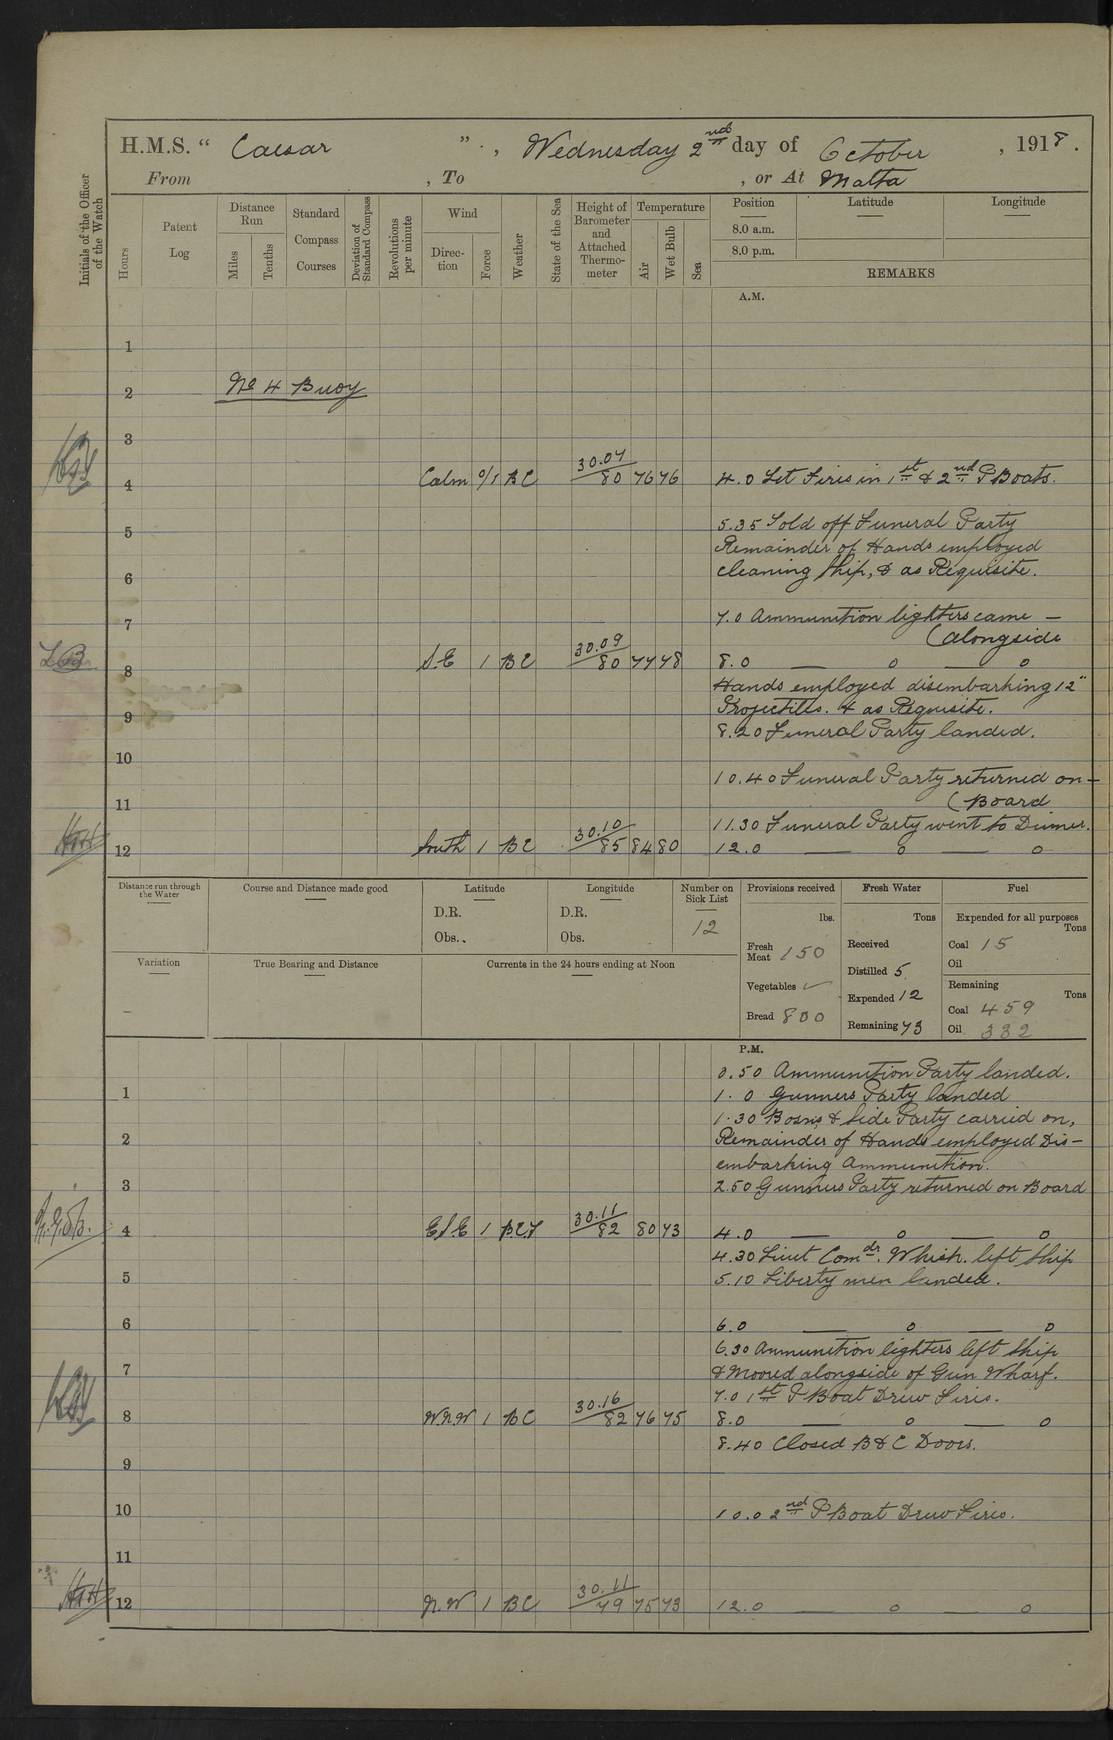 H.M.S. " Caesar ", Wednesday 2nd day of October, 1918.
From , To , or At Malta
Initials of the Officer of the Watch
Hours
Patent Log
Distance Run
Miles
Tenths
Standard Compass Courses
Deviation of Standard Compass
Revolutions per minute
Wind
Direction
Force
Weather
State of the Sea
Height of Barometer and Attached Thermometer
Temperature
Air
Wet Bulb
Sea
Position
Latitude
Longitude
8.0 a.m.
8.0 p.m.
REMARKS
A.M.
1
2 No 4 Buoy
3
4 Calm 0/1 BC 30.07/80 76 76 4.0 Let Fires in 1st & 2nd P Boats.
5.35 Told off Funeral Party
5
Remainder of Hands employed
6 cleaning Ship, & as Requisite.
7 7.0 Ammunition lighters came —
(alongside
8 S.E 1 BC 30.09/80 77 78 8.0 — o — o
Hands employed disembarking 12"
9 Projectiles. & as Requisite.
8.20 Funeral Party landed.
10
10.40 Funeral Party returned on —
11 (Board
11.30 Funeral Party went to Dinner.
12 South 1 BC 30.10/85 84 80 12.0 — o — o
Distance run through the Water
Course and Distance made good
Latitude
D.R.
Obs.
Longitude
D.R.
Obs.
Number on Sick List
12
Provisions received
lbs.
Fresh Meat 150
Vegetables ✓
Bread 800
Fresh Water
Tons
Received
Distilled 5
Expended 12
Remaining 73
Fuel
Expended for all purposes
Tons
Coal 15
Oil
Remaining
Tons
Coal 459
Oil 332
Variation
True Bearing and Distance
Currents in the 24 hours ending at Noon
P.M.
0.50 Ammunition Party landed.
1 1.0 Gunners Party landed
1.30 Bosns & Side Party carried on,
2 Remainder of Hands employed Dis-
embarking Ammunition.
3 2.50 Gunners Party returned on Board
4 ESE 1 30.11/82 80 73 4.0 — o — o
4.30 Lieut Comdr. Whish. left Ship
5 5.10 Liberty men landed.
6 6.0 — o — o
6.30 Ammunition lighters left Ship
7 & Moored alongside of Gun Wharf.
7.0 1st P Boat Drew Fires.
8 WNW 1 BC 30.16/82 76 75 8.0 — o — o
8.40 Closed B & C Doors.
9
10 10.0 2nd P Boat Drew Fires.
11
12 N.W 1 BC 30.11/79 75 73 12.0 — o — o